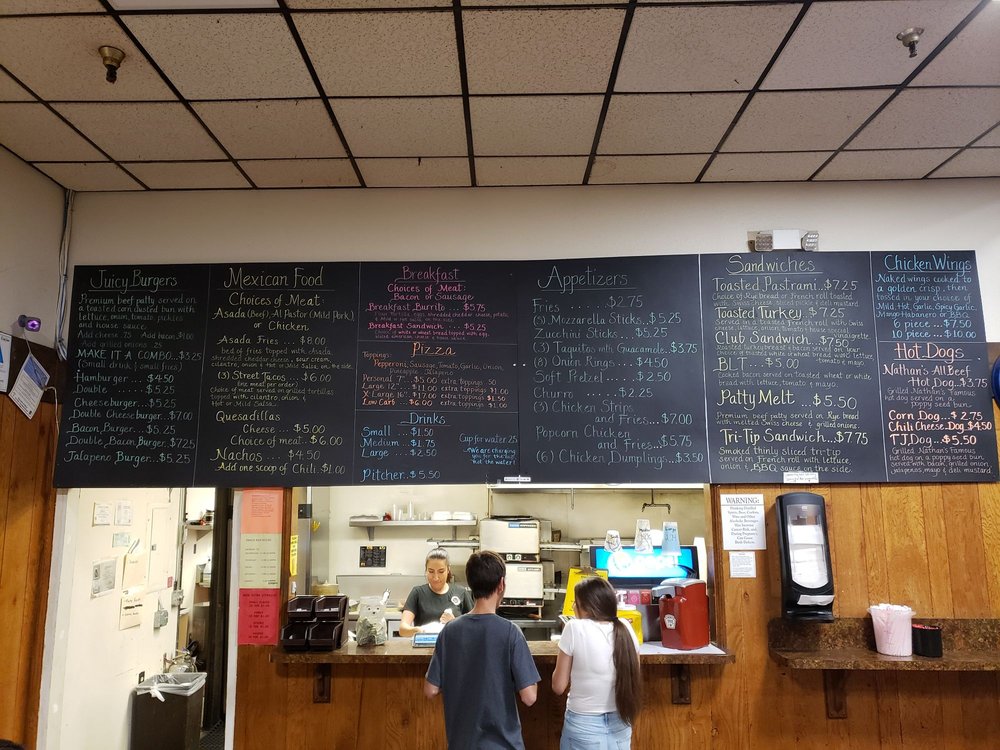 Juicy Burgers
Premium beef patty served on
a toasted corn dusted bun with
lettuce, onion, tomato, pickles
and house sauce.
Add cheese .75 Add bacon $1.00
Add grilled onions .25
MAKE IT A COMBO...$3.25
(Small drink & small fries)
Hamburger ... $4.50
Double ... $5.25
Cheeseburger ... $5.25
Double Cheeseburger ... $7.00
Bacon Burger ... $5.25
Double Bacon Burger ... $7.25
Jalapeno Burger ... $5.25
Mexican Food
Choices of Meat:
Asada (Beef), Al Pastor (Mild Pork),
or Chicken
Asada Fries ... $8.00
bed of fries topped with Asada,
shredded cheddar cheese, sour cream,
cilantro, onion & Hot or Mild Salsa, on the side.
(3) Street Tacos ... $6.00
(one meat per order)
Choice of meat served on grilled tortillas
topped with cilantro, onion &
Hot or Mild Salsa.
Quesadillas
Cheese ... $5.00
Choice of meat ... $6.00
Nachos ... $4.50
Add one scoop of Chili .$1.00
Breakfast
Choices of Meat:
Bacon or Sausage
Breakfast Burrito ... $5.75
Breakfast Sandwich ... $5.25
Pizza
Toppings:
Pepperoni, Sausage, Tomato, Garlic, Onion,
Personal 7" $5.00 extra toppings .50
Large 12" $11.00 extra toppings $1.00
X-Large 16" $17.00 extra toppings $1.50
Low Carb ... $6.00 extra toppings $1.00
Drinks
Small ... $1.50
Medium ... $1.75
Large ... $2.50
Cup for water .25
*We are charging
you for the cup,
not the water!
Pitcher ... $5.50
Appetizers
Fries ... $2.75
(5) Mozzarella Sticks .. $5.25
Zucchini Sticks ... $5.25
(3) Taquitos with Guacamole .. $3.75
(8) Onion Rings ... $4.50
Soft Pretzel ... $2.50
Churro ... $2.25
(3) Chicken Strips
and Fries ... $7.00
Popcorn Chicken
and Fries ... $5.75
(6) Chicken Dumplings ... $3.50
Sandwiches
Toasted Pastrami .. $7.25
Choice of Rye bread or French roll toasted
with Swiss cheese sliced pickle & deli mustard
Toasted Turkey .. $7.25
Served on a toasted French roll with Swiss
cheese, lettuce, onion, tomato & house special
vinaigrette
Club Sandwich .. $7.50
Toasted turkey breast & bacon served on your
choice of toasted white or wheat bread w/ lettuce, tomato & mayo.
BLT ... $5.00
Bacon served on choice of toasted wheat or white
bread with lettuce, tomato & mayo.
Patty Melt ... $5.50
Premium beef patty served on Rye bread
with melted Swiss cheese & grilled onions.
Tri-Tip Sandwich ... $7.75
Smoked thinly sliced tri-tip
served on French roll with lettuce,
onion & BBQ sauce on the side.
Chicken Wings
Naked wings cooked to
a golden crisp, then
tossed in your choice of
Mild, Hot, Garlic, Gooey Garlic,
Mango Habanero or BBQ
6 piece ... $7.50
10 piece .. $10.00
Hot Dogs
Nathan's All Beef
Hot Dog .. $3.75
Grilled Nathan's Famous
hot dog served on a
poppy seed bun.
Corn Dog ... $2.75
Chili Cheese Dog $4.50
TJ Dog ... $5.50
Grilled Nathan's Famous
hot dog on a poppy seed bun
served with bacon, grilled onion,
jalapenos, mayo & deli mustard
WARNING: